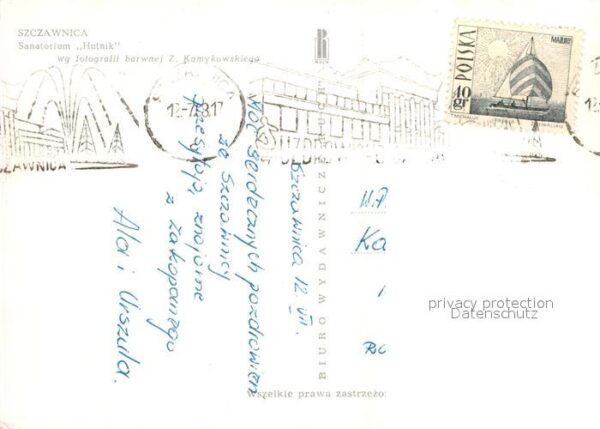 SZCZAWNICA
Sanatorium „Hutnik”
wg fotografii barwnej Z. Kamykowskiego
RUCH
POLSKA
MAZURY
40 gr
12-7
17
ZAWNICA
UZDROW
BIURO WYDAWNICZE „RUCH”
Szczawnica 12. VII.
Moc serdecznych pozdrowień
ze Szczawnicy
przesyłają znajome
z Zakopanego
Ala i Urszula.
W.P.
Ka
i
privacy protection
Datenschutz
Wszelkie prawa zastrzeżo: